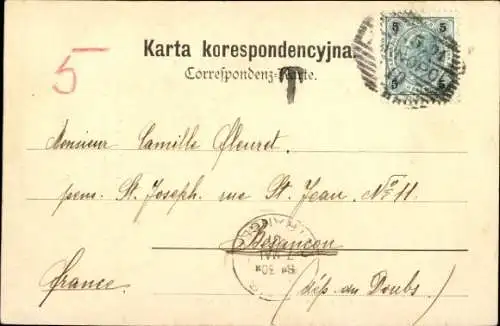 5
Karta korespondencyjna.
Correspondenz-Karte.
T
5 5
5 5
Monsieur Camille Fleuret.
pens. St. Joseph. rue St. Jean. No 11
Besançon
France. (dép. du Doubs)